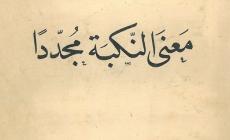 مَعنَى النّكبَة مُجدّدًا